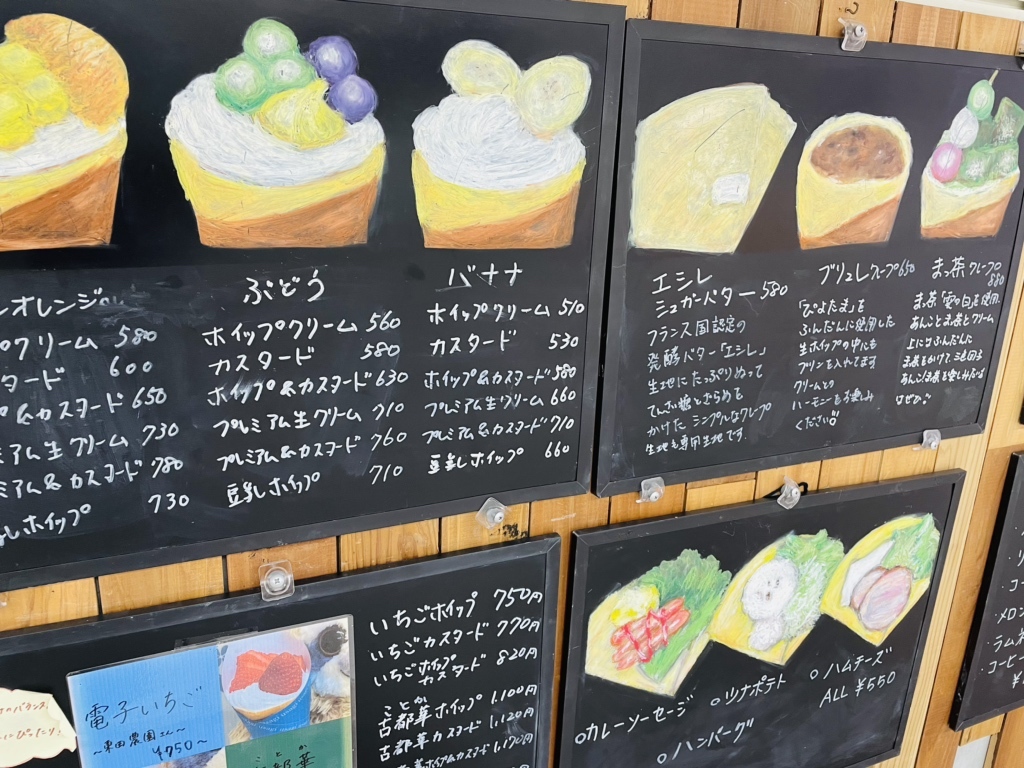 オレンジ
クリーム 580
タード 600
&カスタード 650
ミアム生クリーム 730
ミアム&カスタード 780
ホイップ 730
ぶどう
ホイップクリーム 560
カスタード 580
ホイップ&カスタード 630
プレミアム生クリーム 710
プレミアム&カスタード 760
豆乳ホイップ 710
バナナ
ホイップクリーム 510
カスタード 530
ホイップ&カスタード 580
プレミアム生クリーム 660
プレミアム&カスタード 710
豆乳ホイップ 660
エシレ
シュガーバター 580
フランス国認定の
発酵バター「エシレ」
生地にたっぷりぬって
てんさい糖とざらめを
かけた シンプルなクレープ
生地も専用生地です.
ブリュレクレープ 650
「ぴよたま」を
ふんだんに使用した
生ホイップの中にも
プリンを入れてます
クリームとの
ハーモニーをお楽しみ
ください!
まっ茶クレープ
880
まっ茶「雲の白」を使用.
あんことまっ茶とクリーム
上にもふんだんに
ぜひ
いちごホイップ 750円
いちごカスタード 770円
いちごホイップカスタード 820円
ことか
古都華ホイップ 1.100円
古都華カスタード 1.120円
古都華ホイップ&カスタード 1.170円
電子いちご
¥750~
ことか
都華
のバランス
ぴったり!
○カレーソーセージ
○ツナポテト
○ハムチーズ
○ハンバーグ
ALL ¥550
メロン
コーヒー